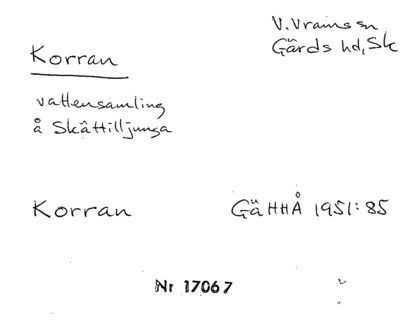 Korran
V. Vrams sn
Gärds hd, Sk
vattensamling
å Skättilljunga
Korran
GäHHÅ 1951:85
Nr 17067